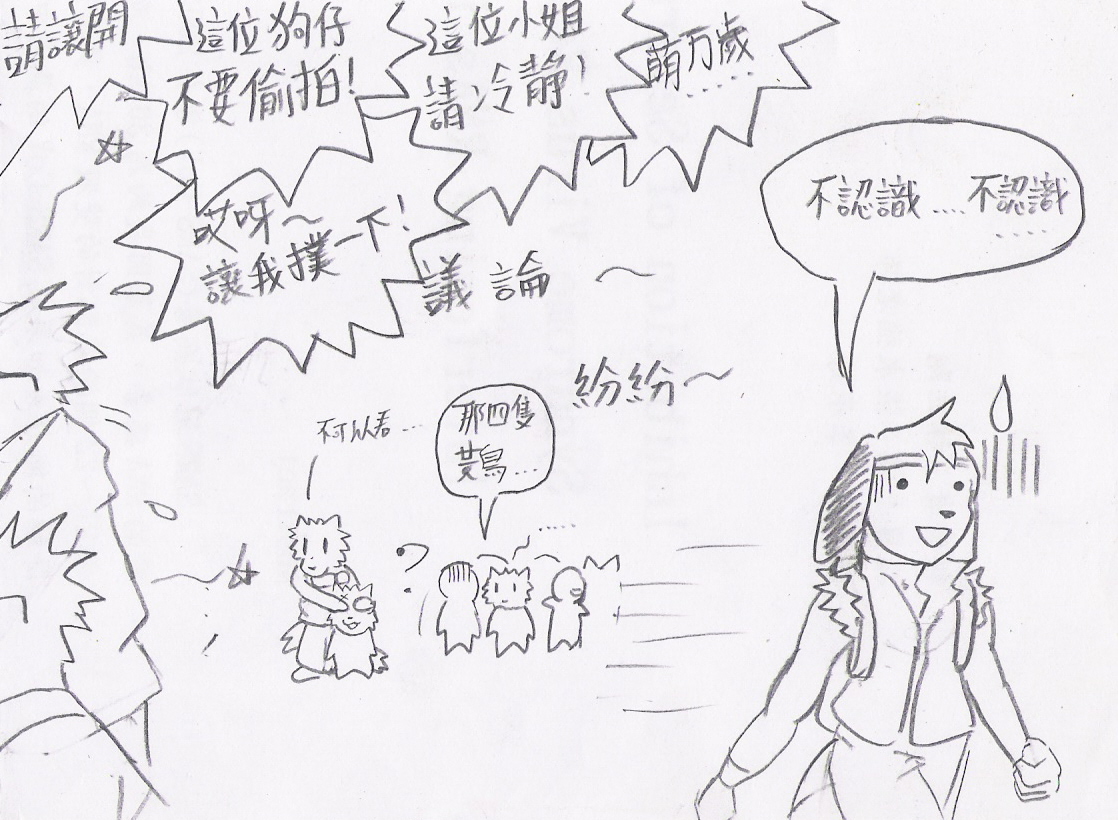 請讓開
這位狗仔
不要偷拍!
這位小姐
請冷靜!
萌万歲
.....
哎呀~
讓我撲一下!
議論~
紛紛~
不認識....不認識
.....
不可以看...
那四隻
....
?
.....